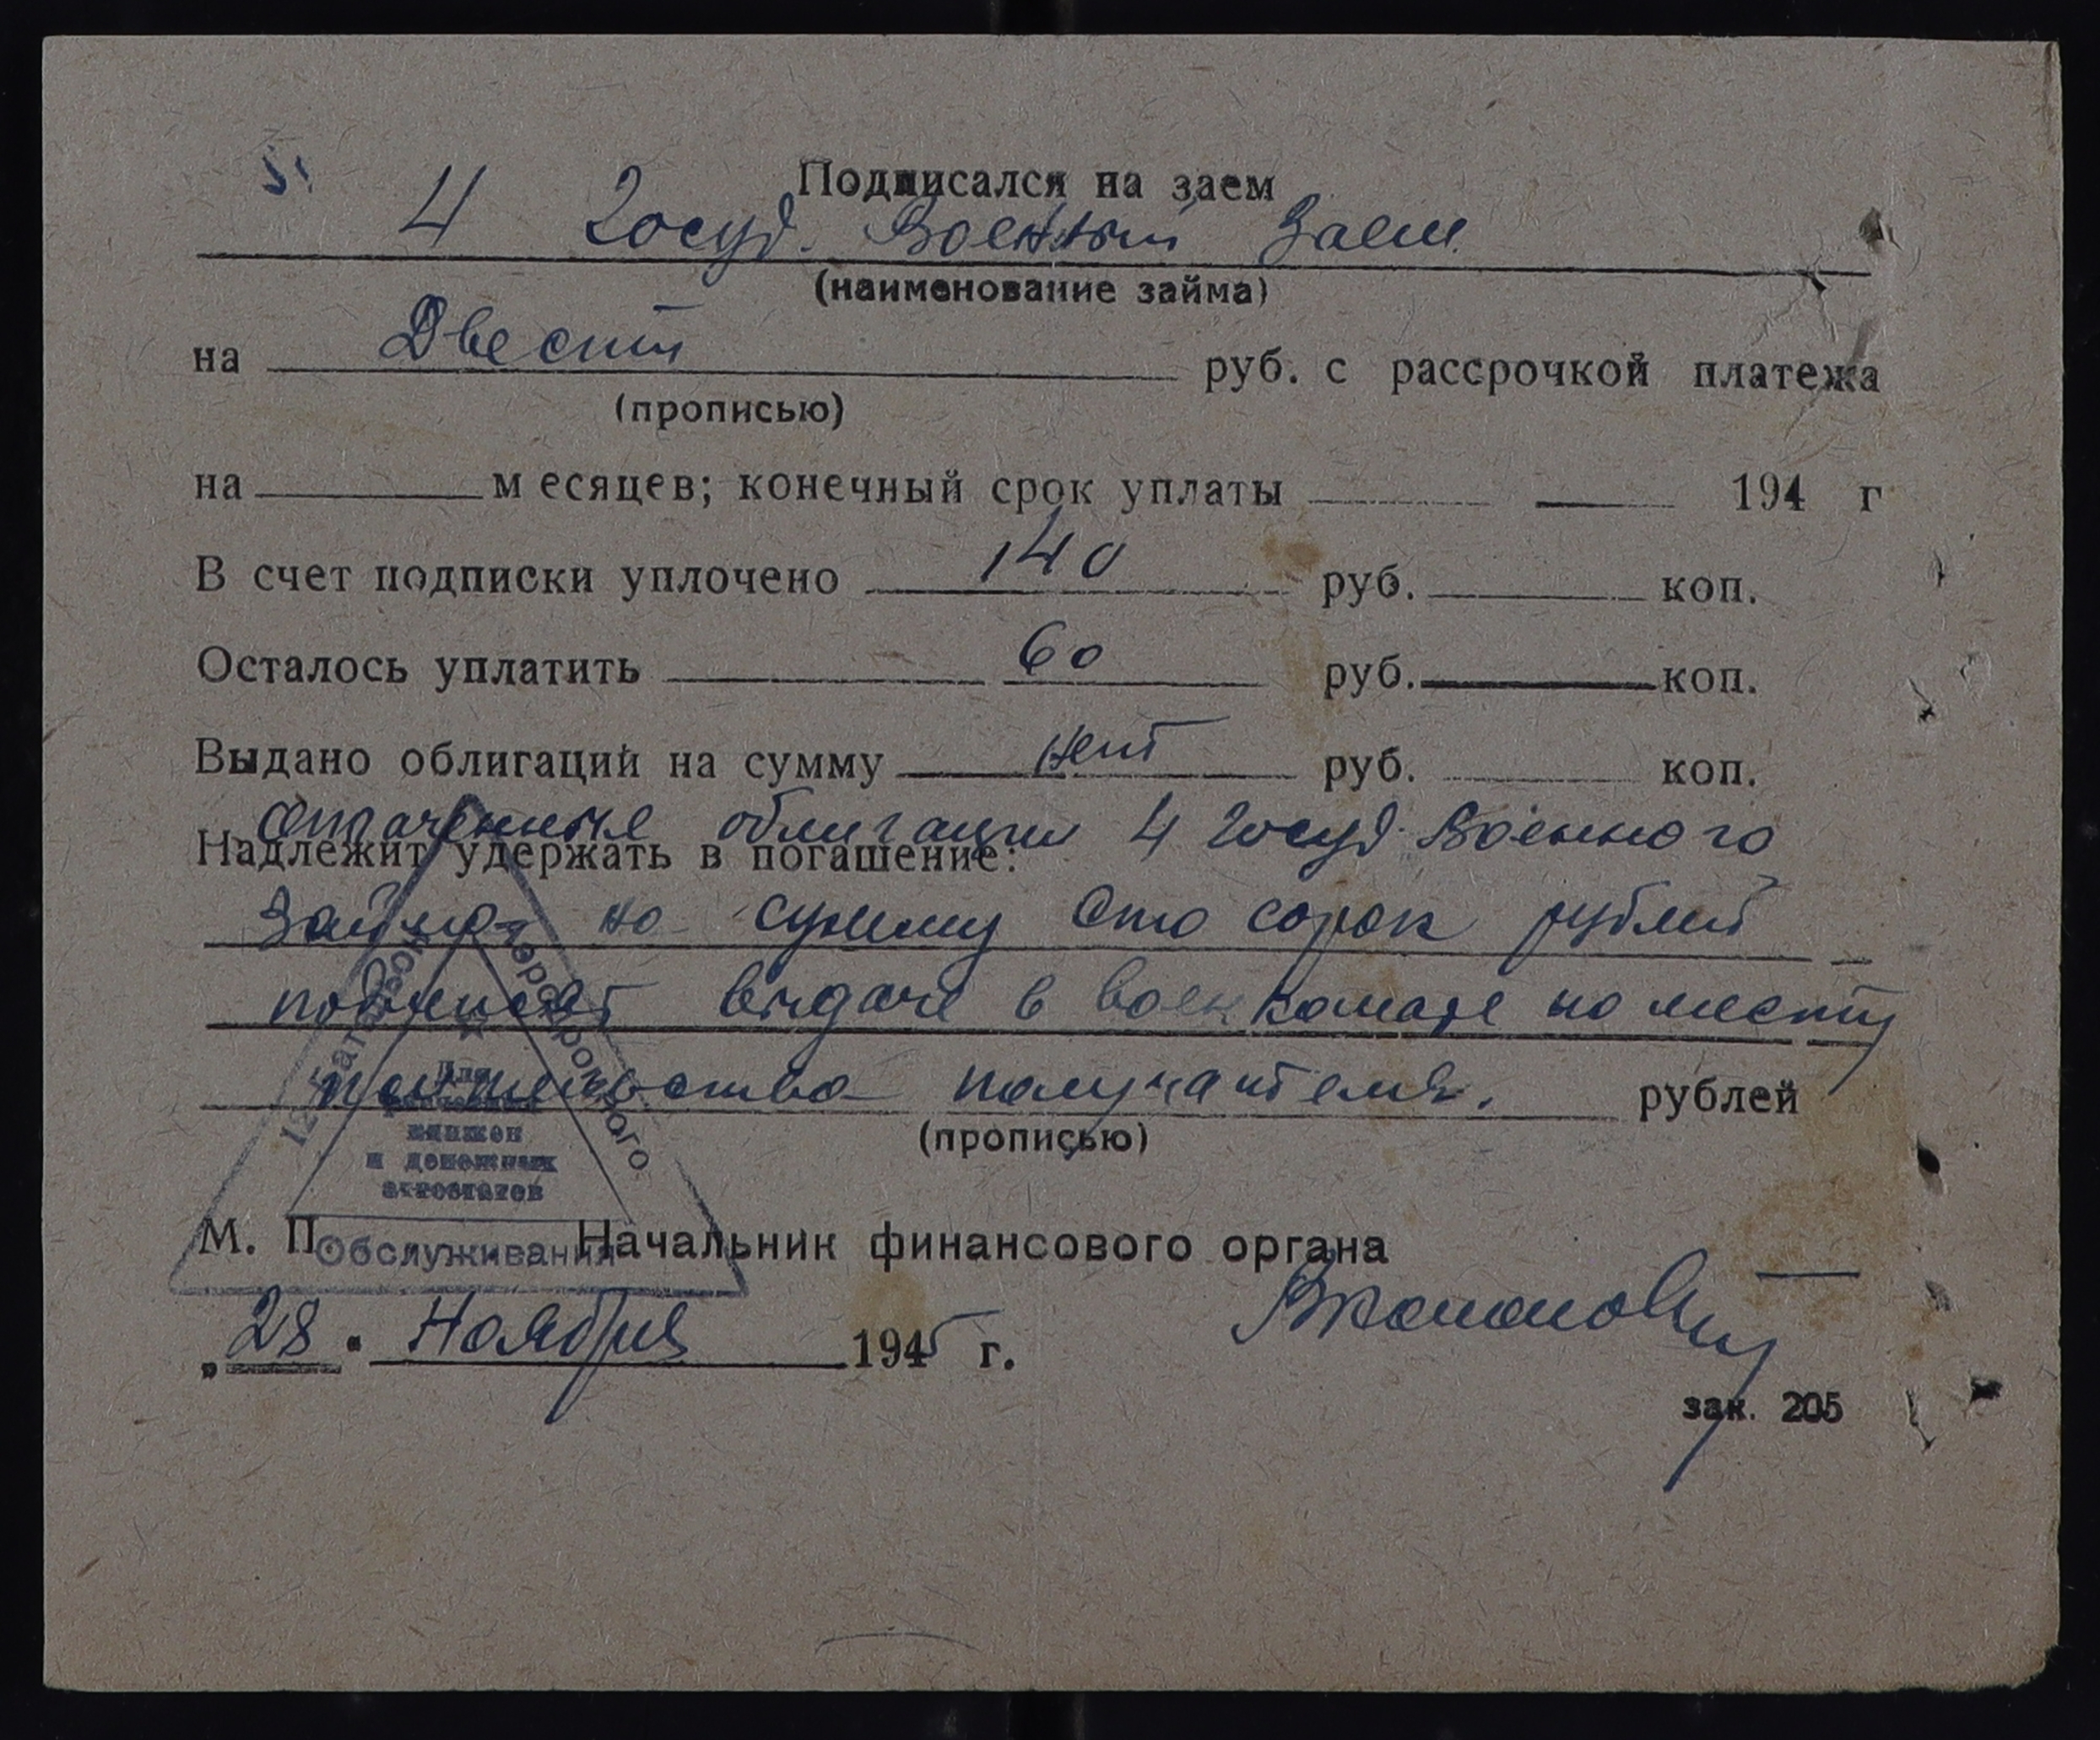 Подписался на заем
4 Госуд. Военный Заем
(наименование займа)
на Двести руб. с рассрочкой платежа
(прописью)
на месяцев; конечный срок уплаты 194 г
В счет подписки уплочено 140 руб. коп.
Осталось уплатить 60 руб. коп.
Выдано облигаций на сумму нет руб. коп.
Оплаченные облигации 4 госуд. Военного
Надлежит удержать в погашение:
Займа на сумму сто сорок рублей
подлежат выдаче в военкомате по месту
жительства получателя. рублей
(прописью)
Для
книжек
и денежных
аттестатов
Обслуживания
М. П. Начальник финансового органа
„28" Ноября 1945 г.
зак. 205